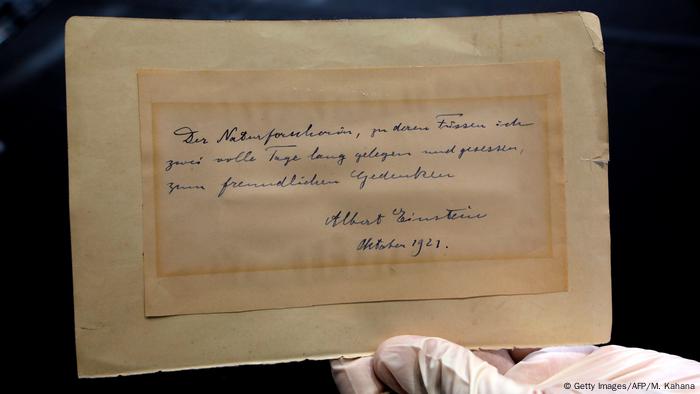 Der Naturforscherin, zu deren Füssen ich
zwei volle Tage lang gelegen und gesessen,
zum freundlichen Gedenken
Albert Einstein
Oktober 1921.
© Getty Images/AFP/M. Kahana